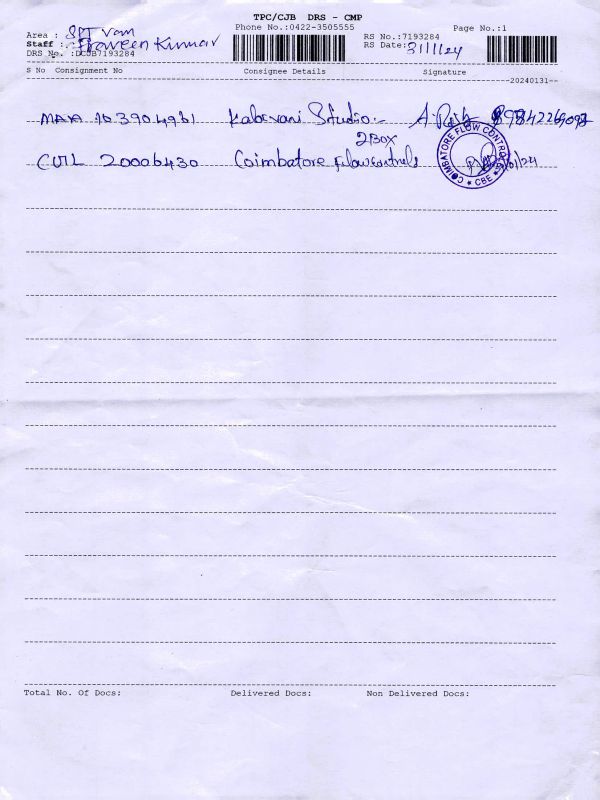 TPC/CJB DRS - CMP
Phone No.:0422-3505555 Page No.:1
Area : SPT Van RS No.:7193284
Staff : Praveen Kumar RS Date: 31/1/24
DRS No. :DCJB7193284
S No Consignment No Consignee Details Signature
20240131
MAA 103904981 Kalaivani Studio:-
2 BOX
CUTL 20006430 Coimbatore Flowcontrols
COIMBATORE FLOW CONTROLS ★ CBE ★
Total No. Of Docs: Delivered Docs: Non Delivered Docs: